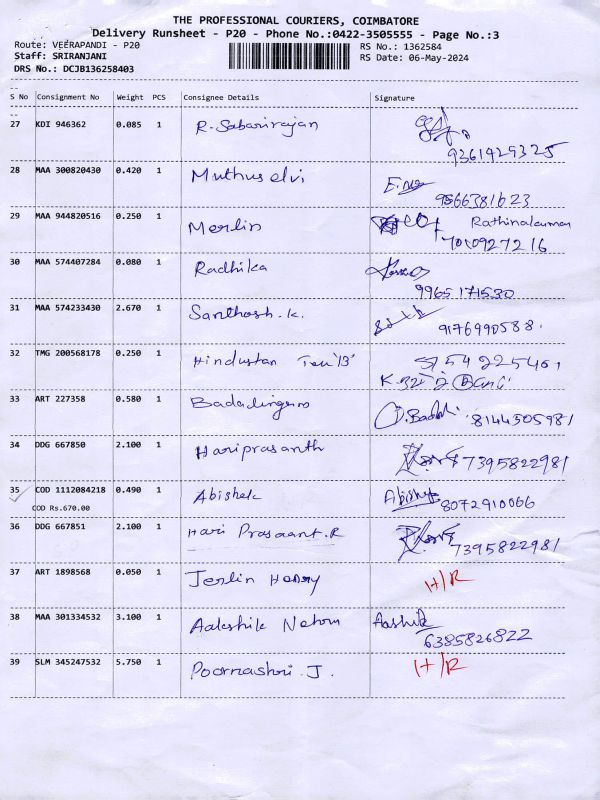 THE PROFESSIONAL COURIERS, COIMBATORE
Delivery Runsheet - P20 - Phone No.:0422-3505555 - Page No.:3
Route: VEERAPANDI - P20 RS No.: 1362584
Staff: SRIRANJANI RS Date: 06-May-2024
DRS No.: DCJB136258403
S No Consignment No Weight PCS Consignee Details Signature
27 KDI 946362 0.085 1 R. Sabarirajan
9361929325
28 MAA 300820430 0.420 1 Muthuselvi
9566381623
29 MAA 944820516 0.250 1 Merlin Rathinakumar
7010927216
30 MAA 574407284 0.080 1 Radhika
9965171530
31 MAA 574233430 2.670 1 Santhosh. K.
9176990588.
32 TMG 200568178 0.250 1 Hindustan
33 ART 227358 0.580 1 Badalingam 8144505981
34 DDG 667850 2.100 1 Hariprasanth 7395822981
35 COD 1112084218 0.490 1 Abishek Abishek 8072910066
COD Rs.670.00
36 DDG 667851 2.100 1 Hari Prasaant. R 7395822981
37 ART 1898568 0.050 1 Jerlin Henry H/R
38 MAA 301334532 3.100 1 Aakshik Aashik
6385826822
39 SLM 345247532 5.750 1 Poornashri. J. H/R